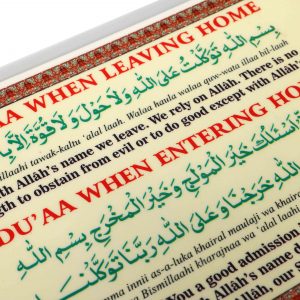 AA WHEN LEAVING HOME
بِسْمِ اللهِ تَوَكَّلْتُ عَلَى اللهِ وَلَا حَوْلَ وَلَا قُوَّةَ إِلَّا
illaahi tawak-kaltu 'alal laah. Walaa haula walaa quw-wata illaa bil-laah
th Allâh's name we leave. We rely on Allâh. There is no
gth to obstain from evil or to do good except with Allâh's
DU'AA WHEN ENTERING HOME
أَسْئَلُكَ خَيْرَ الْمَوْلَجِ وَخَيْرَ الْمَخْرَجِ بِسْمِ اللهِ
اللهِ خَرَجْنَا وَعَلَى اللهِ رَبِّنَا تَوَكَّلْنَا
umma innii as-aluka khairal maulaji wa khairal
wa Bismillaahi kharajnaa wa 'alal laahi
you a good admission
Allâh's name
Allâh, our